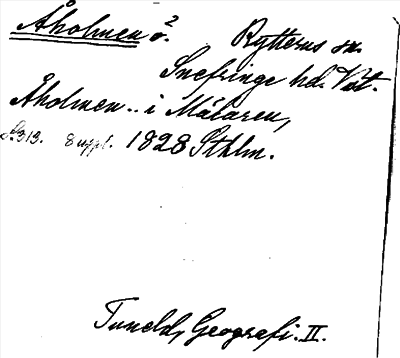 Åholmen ö. 2 Rytterns sn.
Snefringe hd. Vstm.
Åholmen .. i Mälaren,
s. 313. 8 uppl. 1828 Sthlm.
Tuneld, Geografi. II.